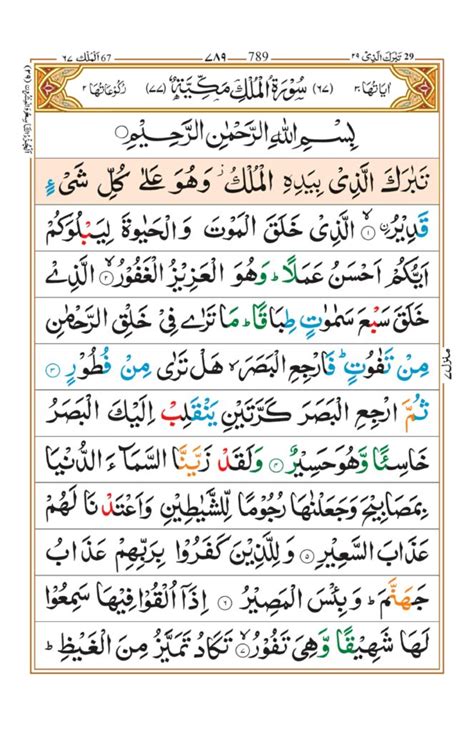 تبٰرك الذی ٢٩ 29 789 ٧٨٩ الملك ٦٧ 67
اٰیاتها ٣٠ (٦٧) سُوْرَةُ الْمُلْكِ مَكِّیَّةٌ (٧٧) رُكُوْعَاتُهَا ٢
بِسْمِ اللهِ الرَّحْمٰنِ الرَّحِیْمِ
تَبٰرَكَ الَّذِیْ بِیَدِهِ الْمُلْكُ وَهُوَ عَلٰی كُلِّ شَیْءٍ
قَدِیْرُ ۙ﴿١﴾ الَّذِیْ خَلَقَ الْمَوْتَ وَالْحَیٰوةَ لِیَبْلُوَكُمْ
اَیُّكُمْ اَحْسَنُ عَمَلًا ؕ وَهُوَ الْعَزِیْزُ الْغَفُوْرُ ۙ﴿٢﴾ الَّذِیْ
خَلَقَ سَبْعَ سَمٰوٰتٍ طِبَاقًا ؕ مَا تَرٰی فِیْ خَلْقِ الرَّحْمٰنِ
مِنْ تَفٰوُتٍ ؕ فَارْجِعِ الْبَصَرَ ۙ هَلْ تَرٰی مِنْ فُطُوْرٍ ﴿٣﴾
ثُمَّ ارْجِعِ الْبَصَرَ كَرَّتَیْنِ یَنْقَلِبْ اِلَیْكَ الْبَصَرُ
خَاسِئًا وَّهُوَ حَسِیْرٌ ﴿٤﴾ وَلَقَدْ زَیَّنَّا السَّمَآءَ الدُّنْیَا
بِمَصَابِیْحَ وَجَعَلْنٰهَا رُجُوْمًا لِّلشَّیٰطِیْنِ وَاَعْتَدْنَا لَهُمْ
عَذَابَ السَّعِیْرِ ﴿٥﴾ وَلِلَّذِیْنَ كَفَرُوْا بِرَبِّهِمْ عَذَابُ
جَهَنَّمَ ؕ وَبِئْسَ الْمَصِیْرُ ﴿٦﴾ اِذَاۤ اُلْقُوْا فِیْهَا سَمِعُوْا
لَهَا شَهِیْقًا وَّهِیَ تَفُوْرُ ۙ﴿٧﴾ تَكَادُ تَمَیَّزُ مِنَ الْغَیْظِ ؕ
منزل ٧